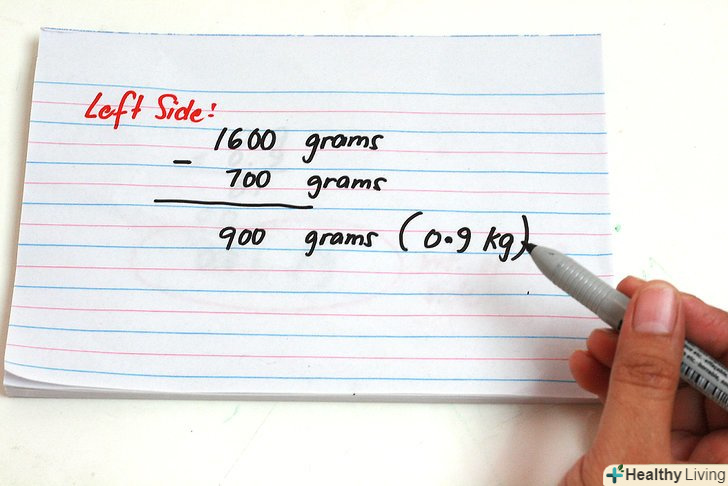 Left Side:
1600 grams
- 700 grams
900 grams (0.9 kg)
+Healthy Living